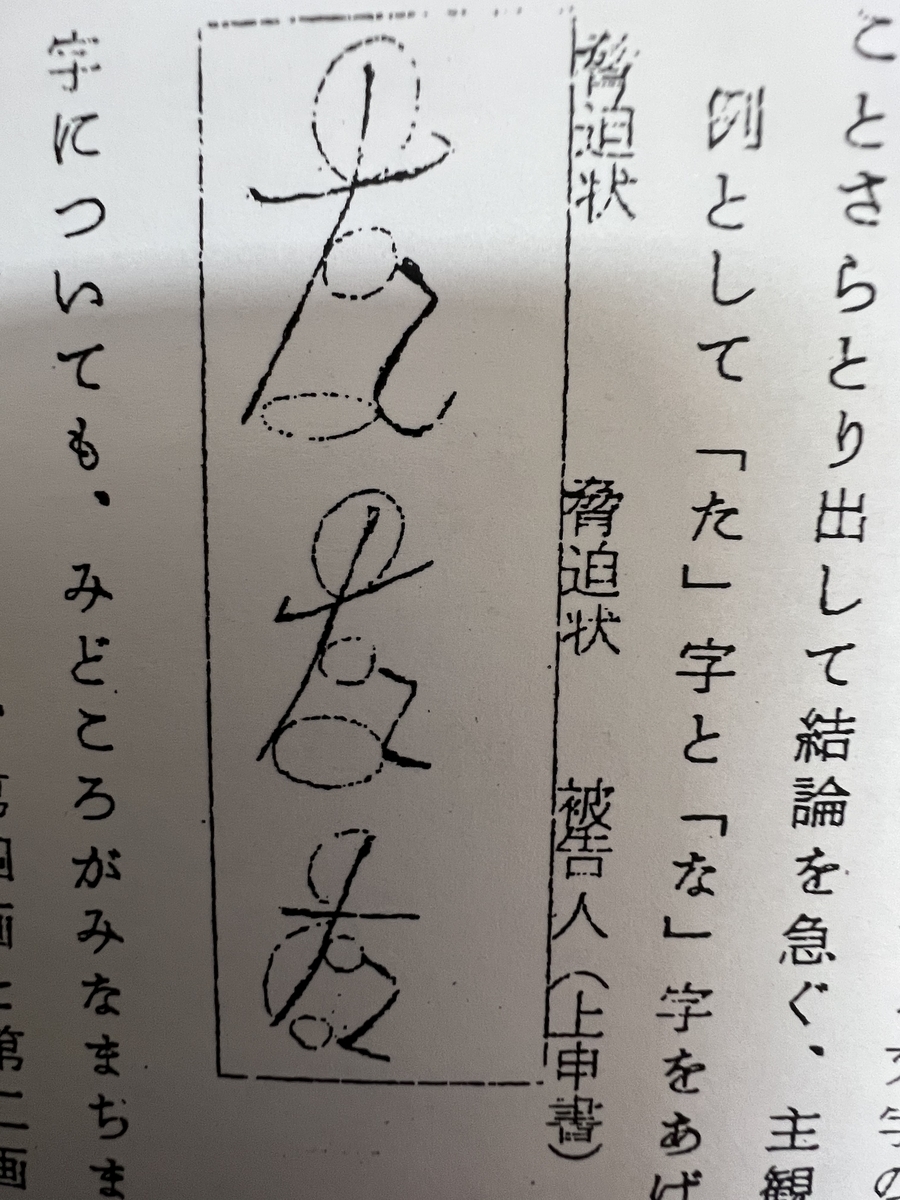 ことさらとり出して結論を急ぐ、主観
例として「た」字と「な」字をあげ
脅迫状 脅迫状 被告人(上申書)
た た た
字についても、みどころがみなまちま